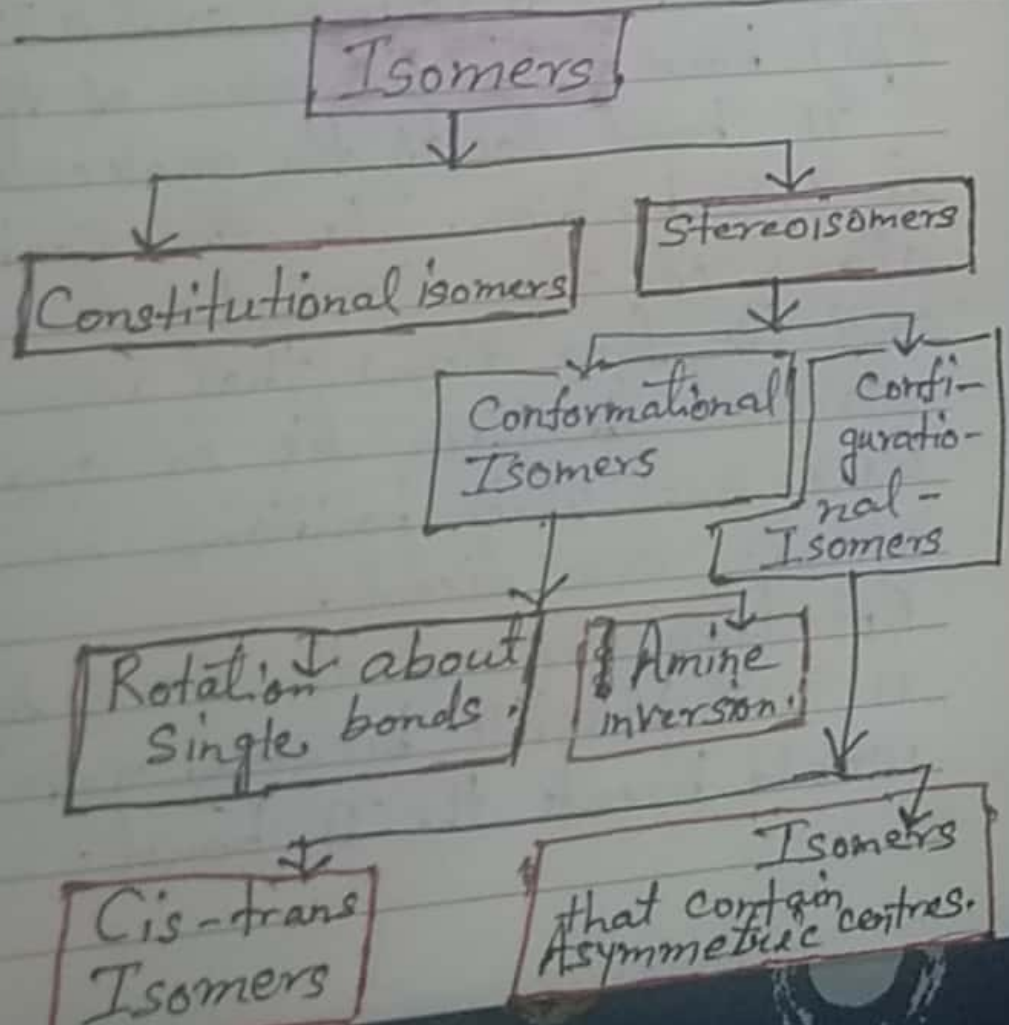 Isomers
Stereoisomers
Constitutional isomers
Conformational
Isomers
Confi-
guratio-
nal -
Isomers
Rotation about
Single bonds.
Amine
inversion.
Cis-trans
Isomers
Isomers
that contain
Asymmetric centres.